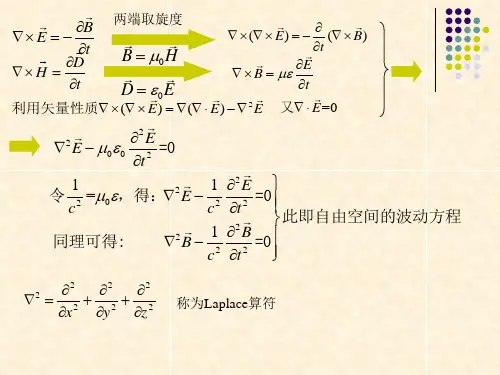 ∇×E⃗ = −∂B⃗/∂t
∇×H⃗ = ∂D⃗/∂t
两端取旋度
B⃗ = μ₀H⃗
D⃗ = ε₀E⃗
∇×(∇×E⃗) = −∂/∂t (∇×B⃗)
∇×B⃗ = με ∂E⃗/∂t
利用矢量性质∇×(∇×E⃗) = ∇(∇·E⃗) − ∇²E⃗ 又∇·E⃗=0
∇²E⃗ − μ₀ε₀ ∂²E⃗/∂t² =0
令 1/c² =μ₀ε，得：∇²E⃗ − 1/c² ∂²E⃗/∂t² =0
同理可得: ∇²B⃗ − 1/c² ∂²B⃗/∂t² =0
此即自由空间的波动方程
∇² = ∂²/∂x² + ∂²/∂y² + ∂²/∂z² 称为Laplace算符